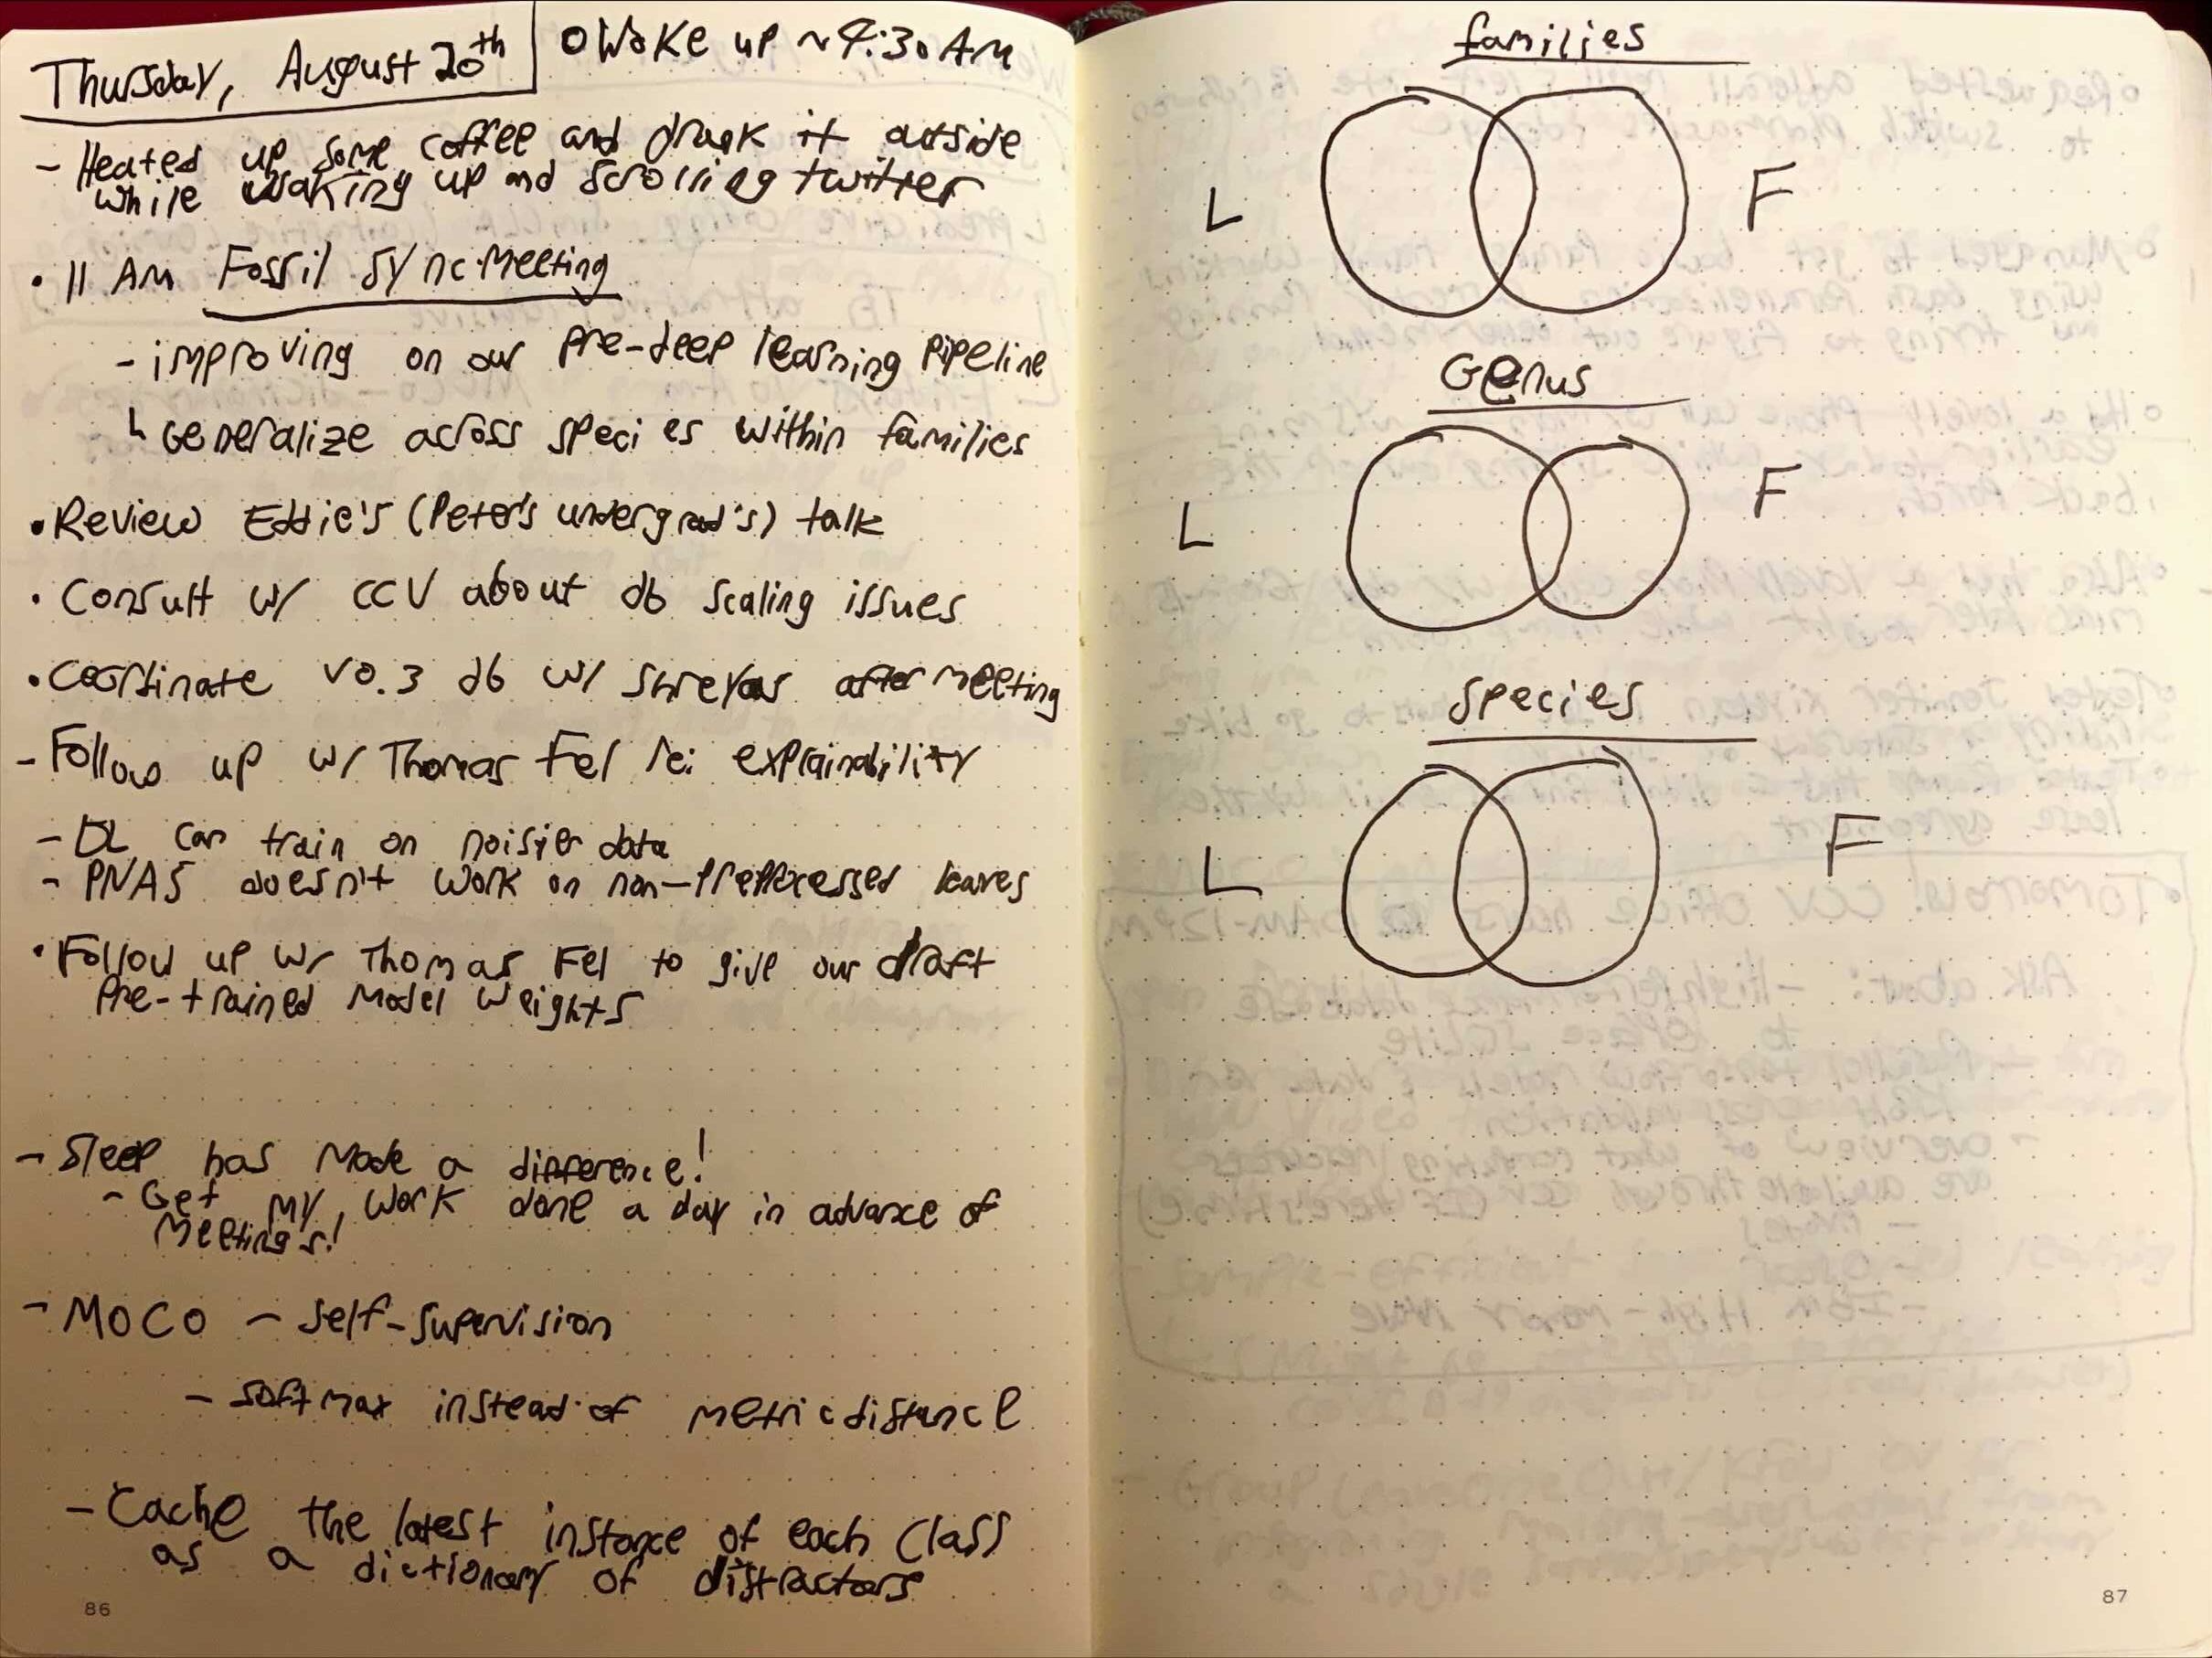 Thursday, August 20th
o Woke up ~9:30 AM
- Heated up some coffee and drank it outside
while waking up and scrolling twitter
· 11 AM Fossil Sync Meeting
- improving on our pre-deep learning pipeline
└ Generalize across species within families
· Review Eddie's (Peter's undergrad's) talk
· Consult w/ CCV about db scaling issues
· Coordinate v0.3 db w/ Shreyas after meeting
- Follow up w/ Thomas Fel re: explainability
- DL can train on noisier data
- PNAS doesn't work on non-preprocessed leaves
· Follow up w/ Thomas Fel to give our draft
pre-trained model weights
- Sleep has made a difference!
- Get my work done a day in advance of
meetings!
- MOCO - self-supervision
- softmax instead of metric distance
- Cache the latest instance of each class
as a dictionary of distractors
86
families
L
F
Genus
L
F
Species
L
F
87